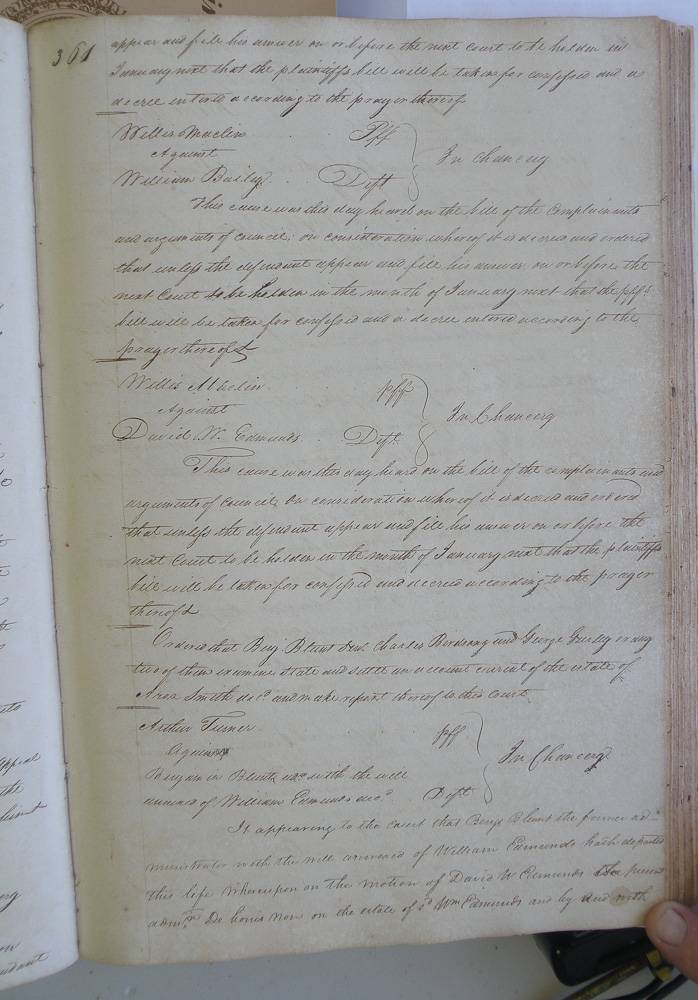 361
appear and file his answer on or before the next court to be holden in
January next that the plaintiffs bill will be taken for confessed and a
decree entered according to the prayer thereof
Willis Maclin Plff
Against In Chancery
William Bailey Deft
This cause was this day heard on the bill of the complainants
and arguments of council: on consideration whereof it is decreed and ordered
that unless the defendant appear and file his answer on or before the
next Court to be holden in the month of January next that the plffs
bill will be taken for confessed and a decree entered according to the
prayer thereof &
Willis Maclin plff
Against In Chancery
David W. Edmunds Deft.
This cause was this day heard on the bill of the complainants and
arguments of council, On consideration whereof it is decreed and ordered
that unless the defendant appear and file his answer on or before the
next Court to be holden in the month of January next that the plaintiffs
bill will be taken for confessed and decreed according to the prayer
thereof &
Ordered that Benj. Blunt Charles Birdsong and George Gurley or any
two of them examine state and settle an account current of the estate of
Smith decd. and make report thereof to this Court
Arthur Turner plff
Against In Chancery
Benjamin Blunt with the will
annexed of William Edmunds decd Deft
It appearing to the court that Benja Blunt the former ad-
ministrator with the will annexed of William Edmunds hath departed
this life whereupon on the motion of David W Edmunds the present
admr. De bonis non on the estate of sd. Wm Edmunds and by and with